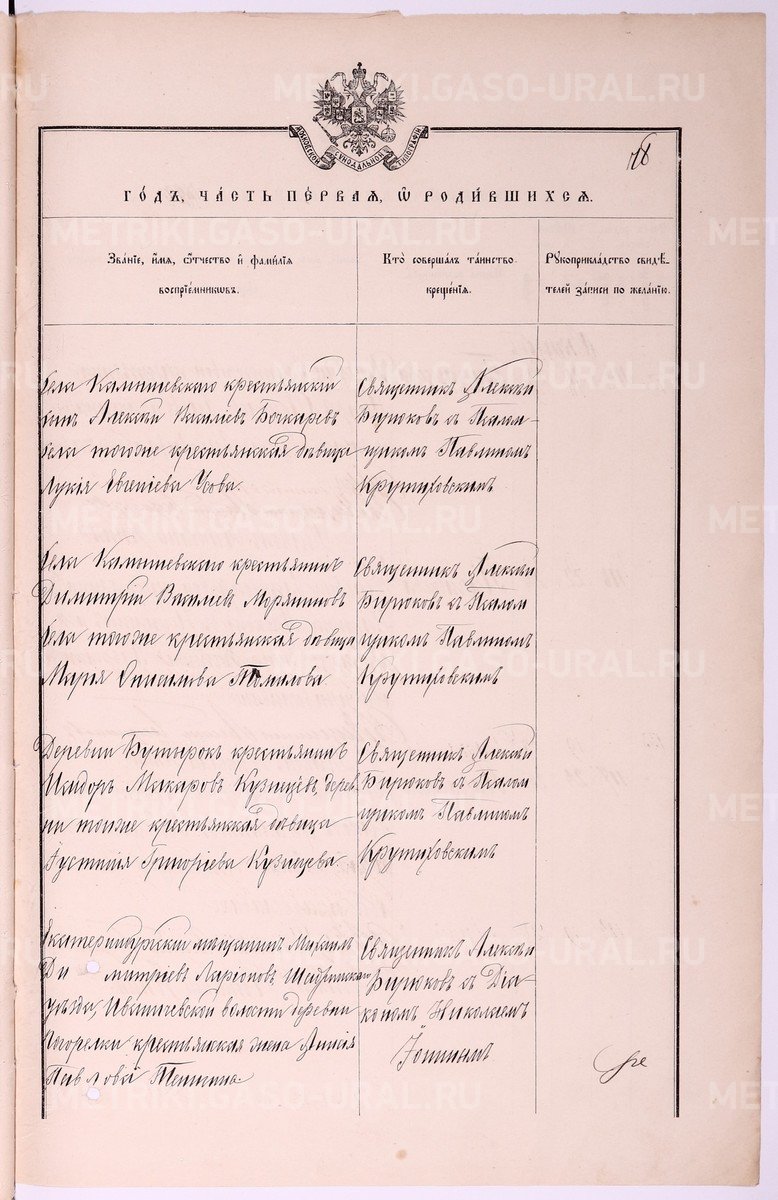 МОСКОВСКОЙ СѴНОДАЛЬНОЙ ТИПОГРАФІИ
ГО́ДЪ, ЧА́СТЬ ПЕ́РВАЯ, Ѽ РОДИ́ВШИХСЯ.
Зва́нїе, и҆́мя, ѻ҆́тчество и҆ фами́лїя
воспрїе́мникѡвъ.
Кто̀ соверша́лъ та́инство
креще́нїя.
Рꙋкоприкла́дство свидѣ́-
телей за́писи по жела́нїю.
Села Камышевскаго крестьянскій
сынъ Алексѣй Василіевъ Бочкаревъ
села тогоже крестьянская дѣвица
Лукія Евгеніева Усова.
Священникъ Алексѣй
Бирюковъ съ Псалом-
щикомъ Павлиномъ
Крутиховскимъ
Села Камышевскаго крестьянинъ
Димитрій Василіевъ
села тогоже крестьянская дѣвица
Марія Томилова
Священникъ Алексѣй
Бирюковъ съ Псалом
щикомъ Павлиномъ
Крутиховскимъ
Деревни Бутырокъ крестьянинъ
Исидоръ Макаровъ Кузнецовъ, дерев
ни тояже крестьянская дѣвица
Іустинія Григоріева Кузнецова
Священникъ Алексѣй
Бирюковъ съ Псалом
щикомъ Павлиномъ
Крутиховскимъ
Екатеринбургскій мѣщанинъ Михаилъ
Димитріевъ Ларіоновъ, Шадринскаго
уѣзда, Иванищевской волости деревни
Погорелки крестьянская жена
Павлова
Священникъ Алексѣй
Бирюковъ съ Діа-
кономъ Николаемъ
METRIKI.GASO-URAL.RU